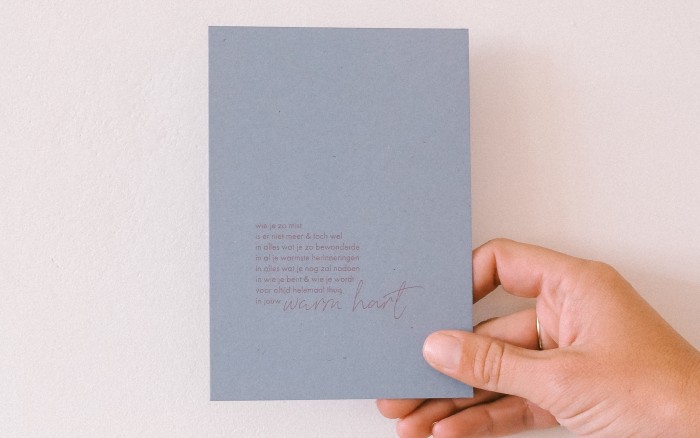 wie je zo mist
is er niet meer & toch wel
in alles wat je zo bewonderde
in al je warmste herinneringen
in alles wat je nog zal nadoen
in wie je bent & wie je wordt
voor altijd helemaal thuis
in jouw warm hart